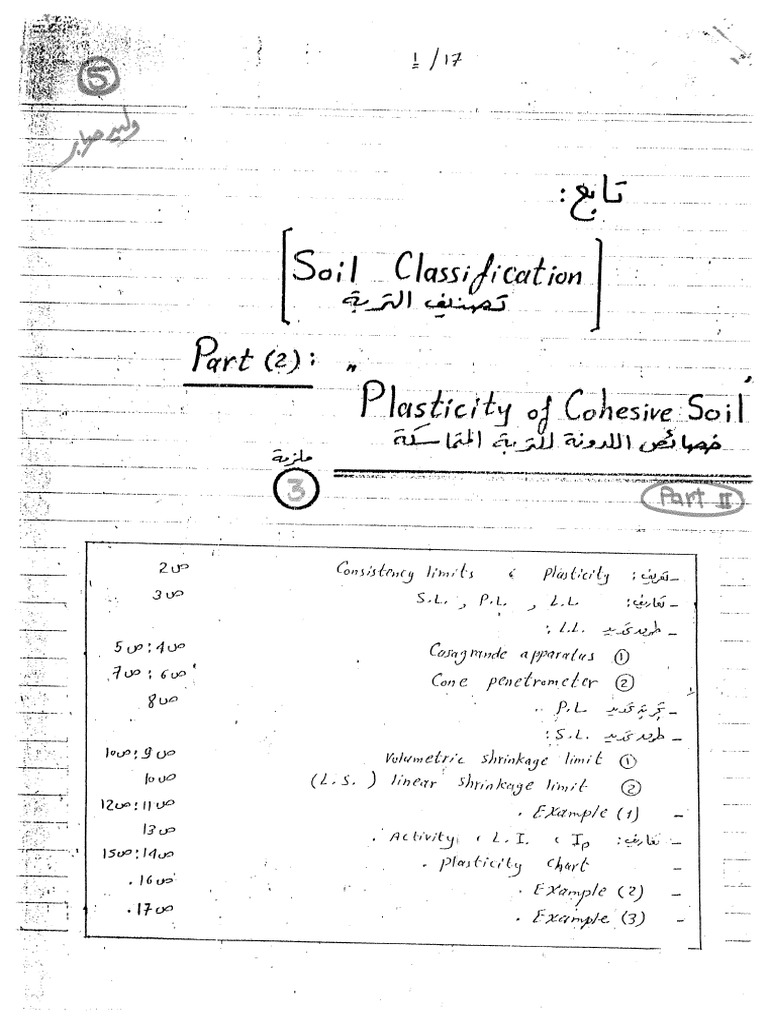 1/17
5
وليد صابر
تابع:
[Soil Classification]
تصنيف التربة
Part (2): "
Plasticity of Cohesive Soil"
خصائص اللدونة للتربة المتماسكة
ملزمة
3
Part II
- تعريف: Plasticity ، Consistency limits ص2
- تعاريف: L.L. , P.L. , S.L. ص3
- طريقة تحديد L.L.:
① Casagrande apparatus ص4 : ص5
② Cone penetrometer ص6 : ص7
- تجربة تحديد P.L. ص8
- طريقة تحديد S.L.:
① Volumetric shrinkage limit ص9 : ص10
② linear shrinkage limit (L.S.) ص10
- Example (1). ص11 : ص12
- تعاريف: Ip ، L.I. ، Activity. ص13
- Plasticity Chart. ص14 : ص15
- Example (2). ص16.
- Example (3). ص17.